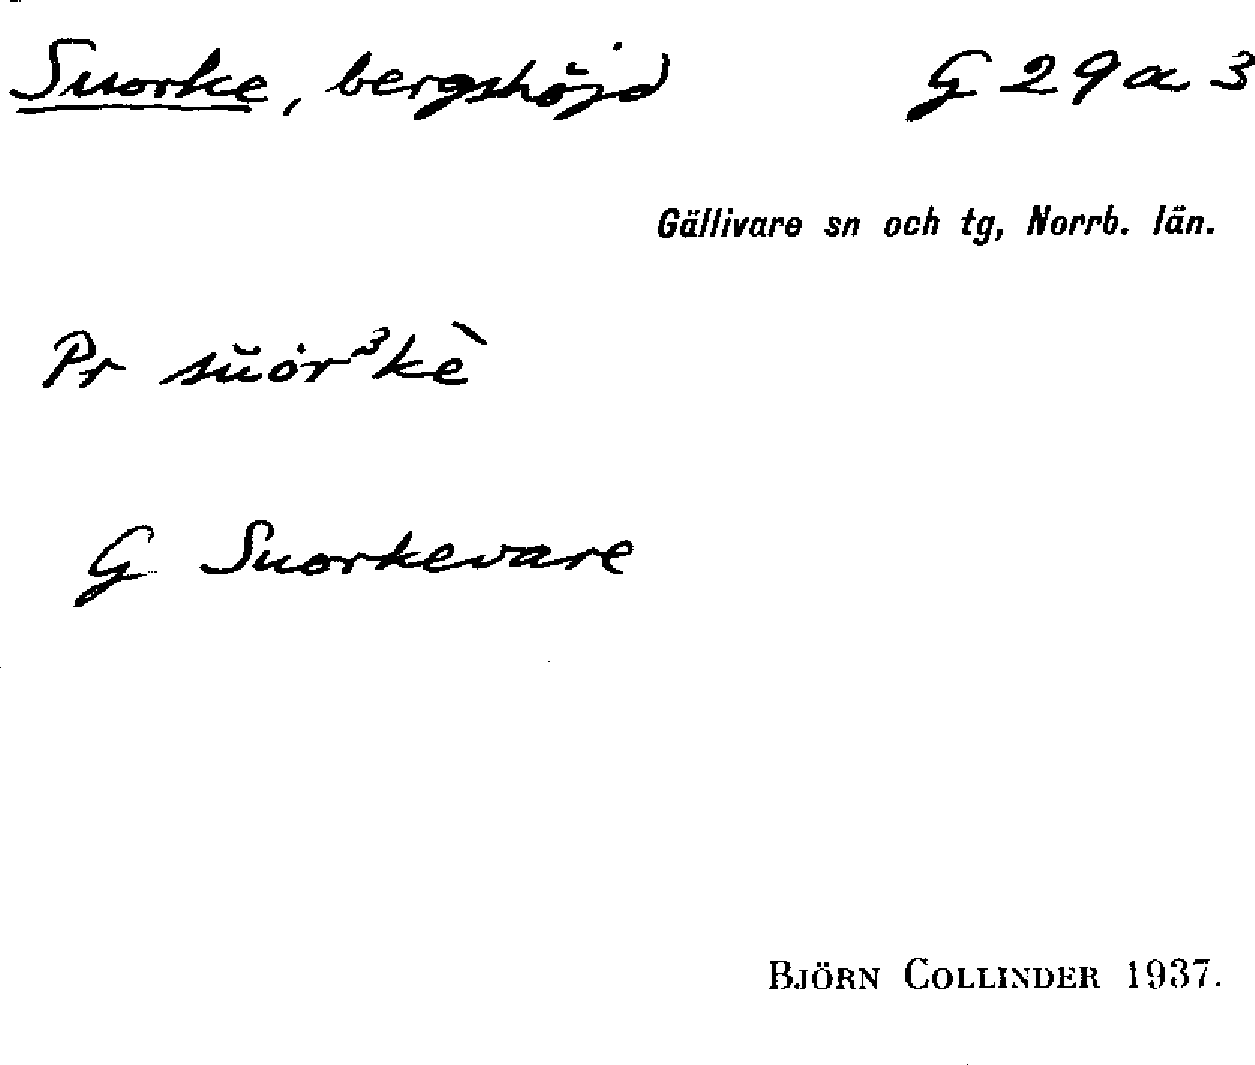 Suorke, bergshöjd G 29 a 3
Gällivare sn och tg, Norrb. län.
Pr sŭȯr³kè
G Suorkevare
BJÖRN COLLINDER 1937.